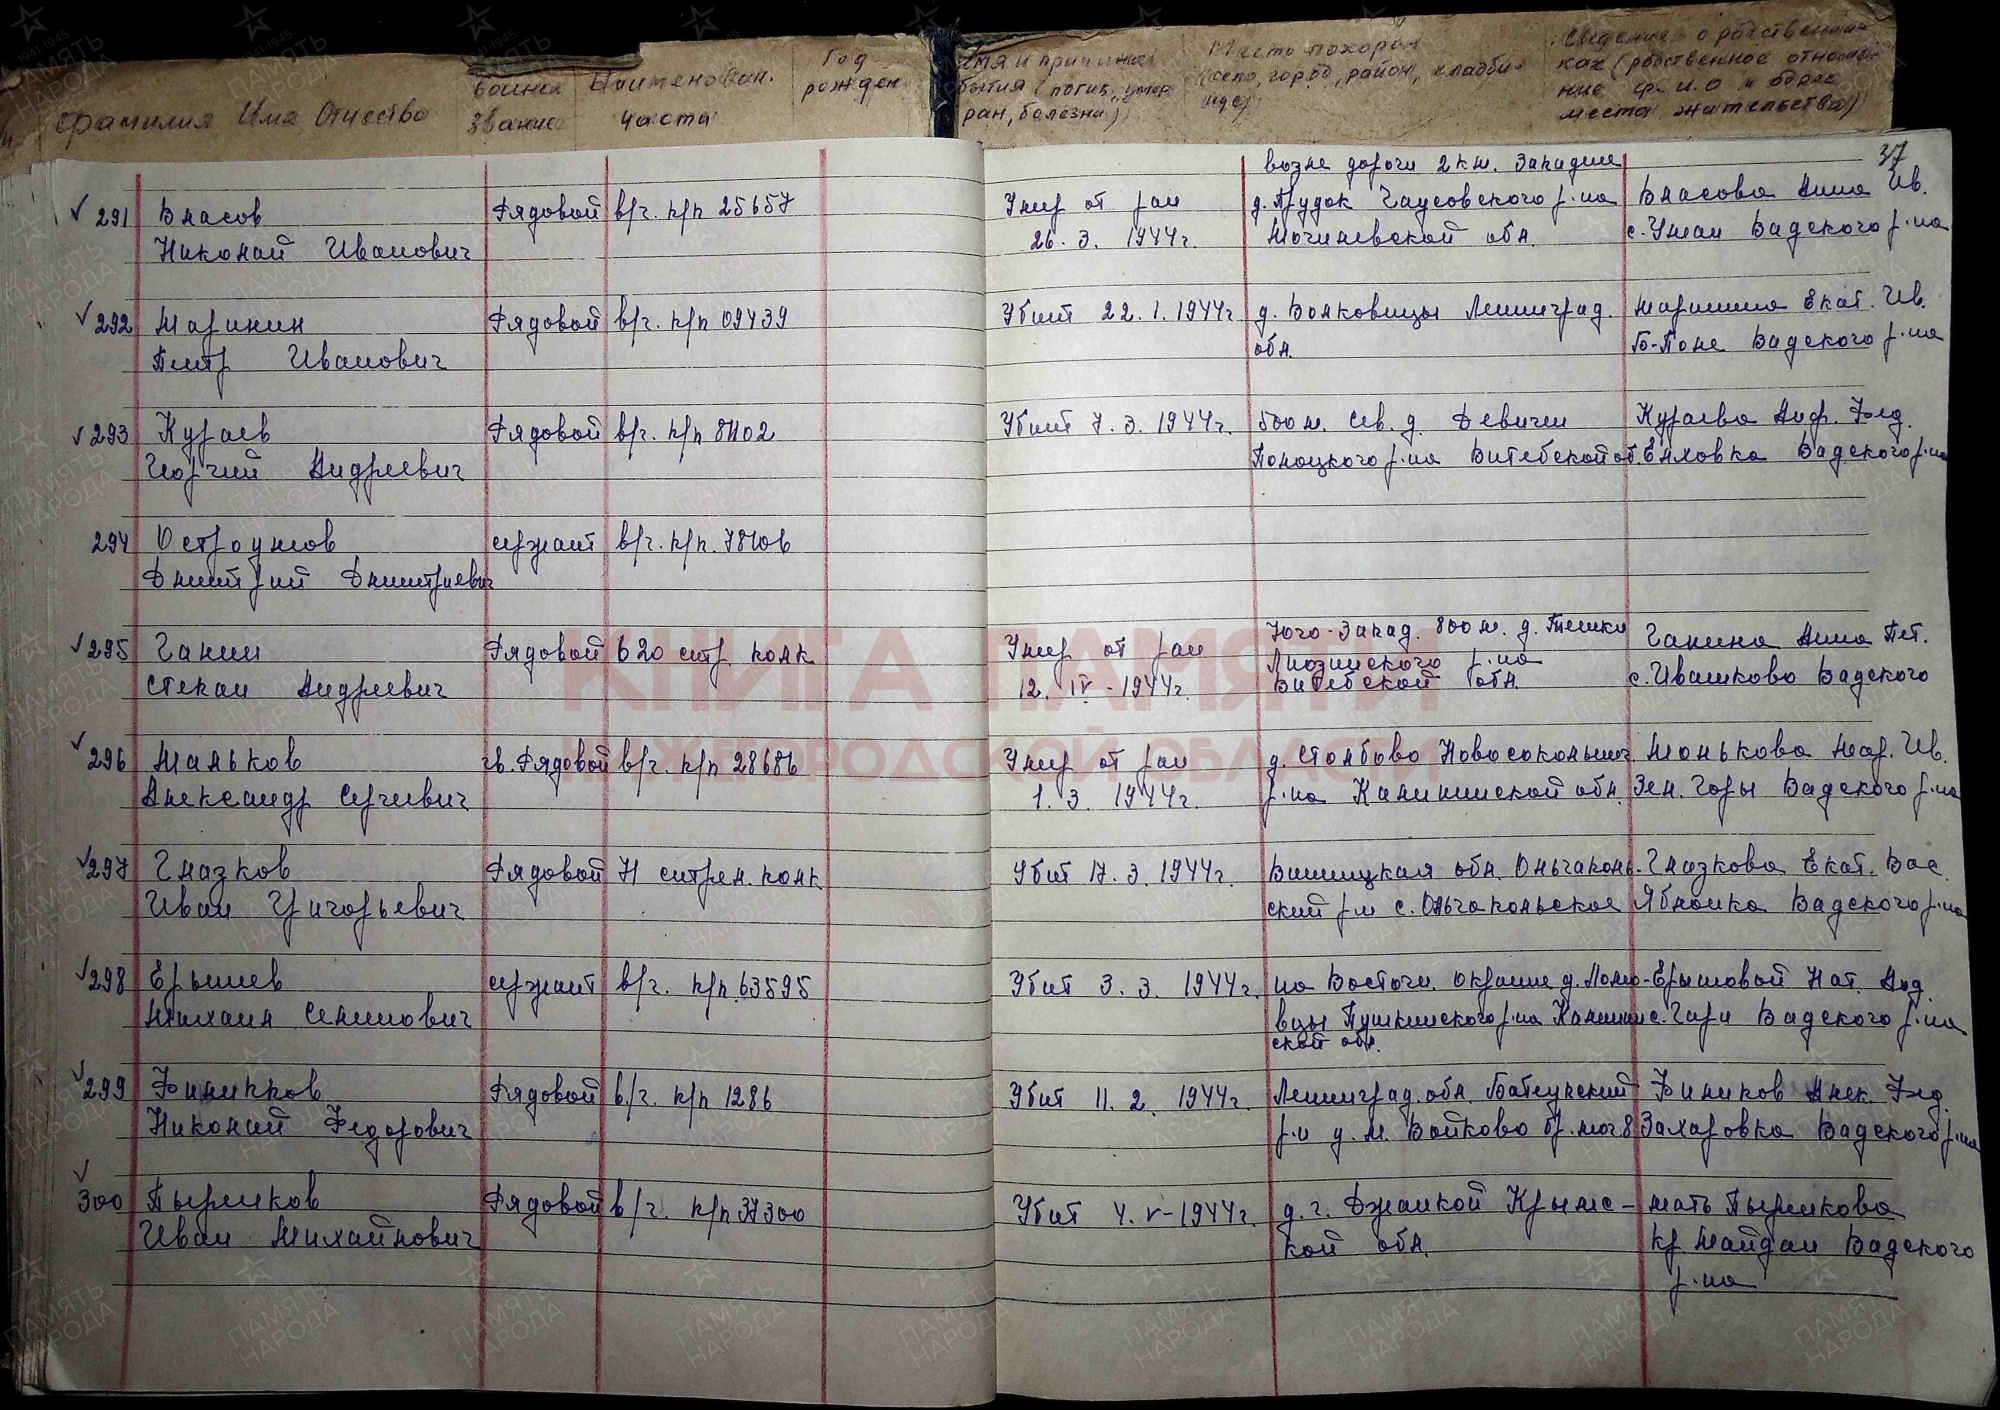 Фамилия Имя Отчество
Воинск звание
Наименован. части
Год рожден
Имя и причина бытия (погиб, умер ран, болезни)
Место похорон (село, город, район, кладбище)
Сведения о родственниках (родственное отношение ф.и.о и адрес места жительства)
37
возле дороги 2 км. Западнее
291 Власов Рядовой в/ч. п/п 25657 Умер от ран д. Прудок Чаусовского р-на Власова Анна Ив.
Николай Иванович 26. 3. 1944г. Могилевской обл. с. Умай Вадского р-на
292 Маринин Рядовой в/ч. п/п 09439 Убит 22. 1. 1944г. д. Волковицы Ленинград. Маринина Екат. Ив.
Петр Иванович обл. Б-Поле Вадского р-на
293 Кураев Рядовой в/ч. п/п Убит 7. 3. 1944г. 500 м. сев. д. Девички Кураева Федо.
Георгий Андреевич Полоцкого р-на Витебской об. Елховка Вадского р-на
294 Остроумов сержант в/ч. п/п.
Дмитрий Дмитриевич
Юго-Запад. 800 м. д.
295 Ганин Рядовой 620 стр. полк Умер от ран Лиозинского р-на Ганина Анна Пет.
Степан Андреевич 12. IV - 1944г. Витебской обл. с. Ивашково Вадского
296 Маньков гв. Рядовой в/ч. п/п 28686 Умер от ран д. Столбово Новосокольнич. Монькова Мар. Ив.
Александр Сергеевич 1. 3. 1944г. р-на Калининской обл. Зел. Горы Вадского р-на
297 Глазков Рядовой стрел. полк Убит 17. 3. 1944г. Винницкая обл. Ольгаполь- Глазкова Екат. Вас.
Иван Григорьевич ский р-н с. Ольгопольское Яблонка Вадского р-на
298 Ерышев сержант в/ч. п/п. 63595 Убит 3. 3. 1944г. на Восточн. окраине д. Ерышовой Нат.
Михаил Семенович вцы Пушкинского р-на Калинин- с. Гари Вадского р-на
ской обл.
299 Фиников Рядовой в/ч. п/п 1286 Убит 11. 2. 1944г. Ленинград. обл. Батецкий Фиников Алек. Фед.
Николай Федорович р-н д. М. Войково бр. мог 8 Захаровка Вадского р-на
300 Пырчков Рядовой в/ч. п/п 37300 Убит 4. V - 1944г. д. г. Джанкой Крымс- мать Пырчкова
Иван Михайлович кой обл. кр. Майдан Вадского
р-на
КНИГА ПАМЯТИ
НИЖЕГОРОДСКОЙ ОБЛАСТИ
ПАМЯТЬ НАРОДА